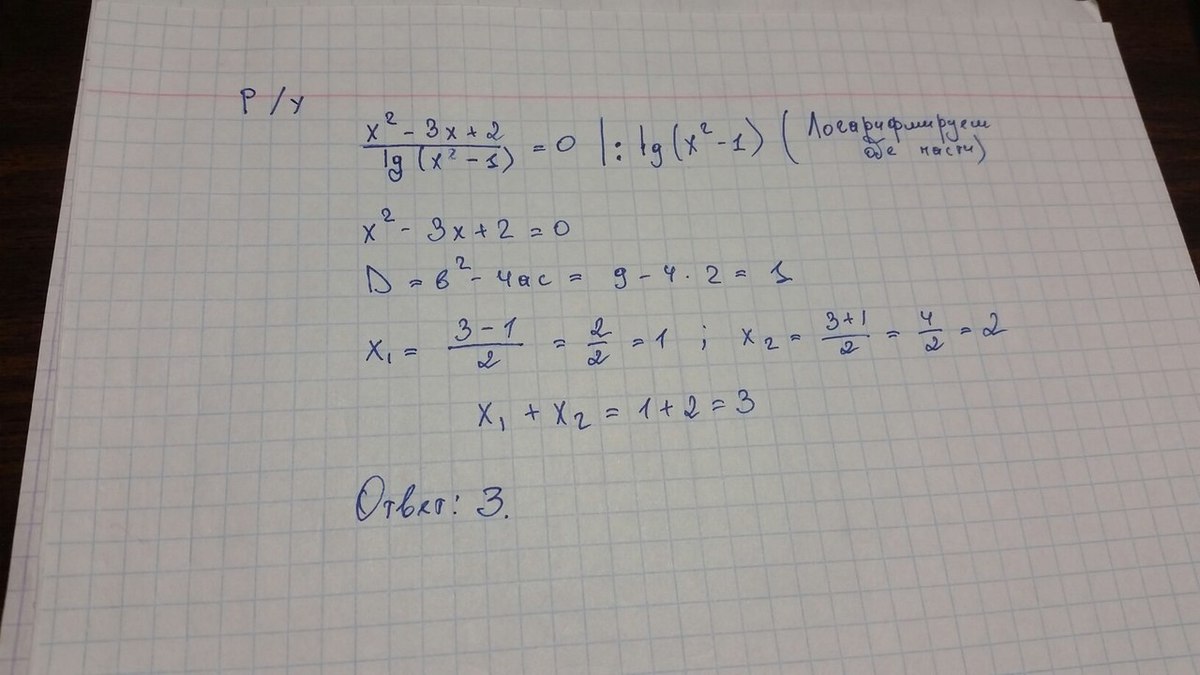 Р/у
x² - 3x + 2 / lg (x² - 1) = 0 | : lg (x² - 1) (Логарифмируем обе части)
x² - 3x + 2 = 0
D = в² - 4ас = 9 - 4 · 2 = 1
x₁ = 3 - 1 / 2 = 2/2 = 1 ; x₂ = 3+1 / 2 = 4/2 = 2
x₁ + x₂ = 1 + 2 = 3
Ответ: 3.